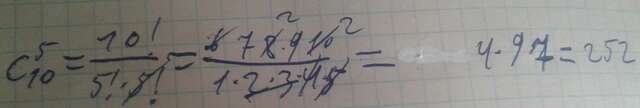 C₁₀⁵ = 10!/(5!·5!) = (6 7 8² · 9 10²)/(1·2·3·4·5) = 4·9 7 = 252